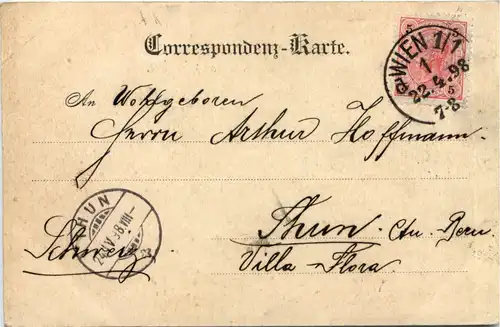 Correspondenz-Karte.
5 5
WIEN 1/1
1
22.4.98
7-8
5
An Wohlgeboren
Herrn Arthur Hoffmann.
THUN
Thun, Ctn. Bern.
Schweiz
Villa-Flora